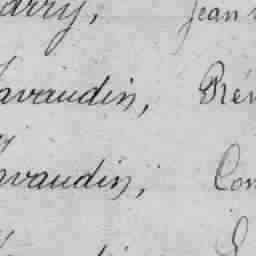 arry, Jean
avaudin, Prév
avaudin, Con